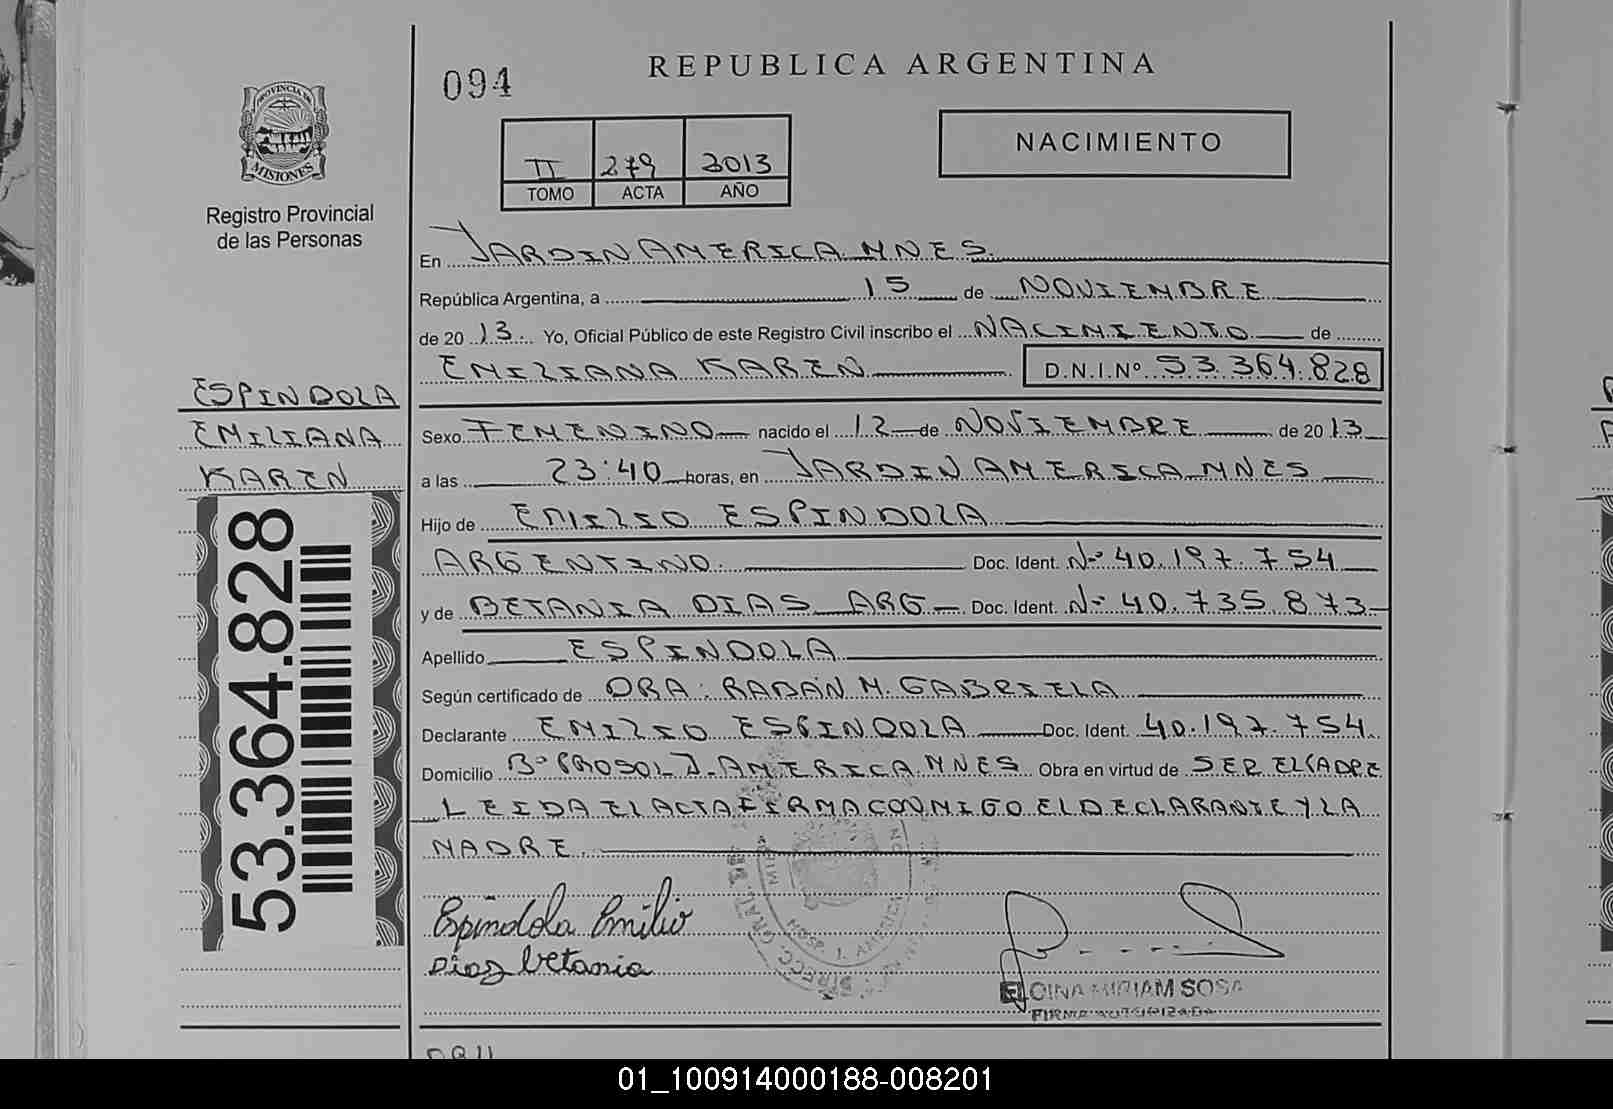 094
REPUBLICA ARGENTINA
PROVINCIA DE
MISIONES
Registro Provincial
de las Personas
II 279 2013
TOMO ACTA AÑO
NACIMIENTO
En JARDIN AMERICA MNES.
República Argentina, a 15 de NOVIEMBRE
de 20 13. Yo, Oficial Público de este Registro Civil inscribo el NACIMIENTO de
EMILIANA KAREN D.N.I.Nº 53.364.828
ESPINDOLA
EMILIANA
KAREN
53.364.828
Sexo FEMENINO nacido el 12 de NOVIEMBRE de 20 13
a las 23:40 horas, en JARDIN AMERICA MNES
Hijo de EMILIO ESPINDOLA
ARGENTINO. Doc. Ident. Nº 40.197.754
y de BETANIA DIAS ARG Doc. Ident. Nº 40.735.873
Apellido ESPINDOLA
Según certificado de DRA: RABAN M. GABRIELA
Declarante EMILIO ESPINDOLA Doc. Ident. 40.197.754
Domicilio Bº PROSOL J. AMERICA MNES Obra en virtud de SER EL PADRE
LEIDA EL ACTA FIRMA CONMIGO EL DECLARANTE Y LA
MADRE
Espindola Emilio
Diaz betania
ELOINA MIRIAM SOSA
FIRMA AUTORIZADA
01_100914000188-008201